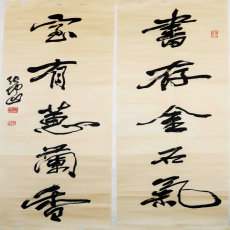 書存金石氣
室有蕙蘭香